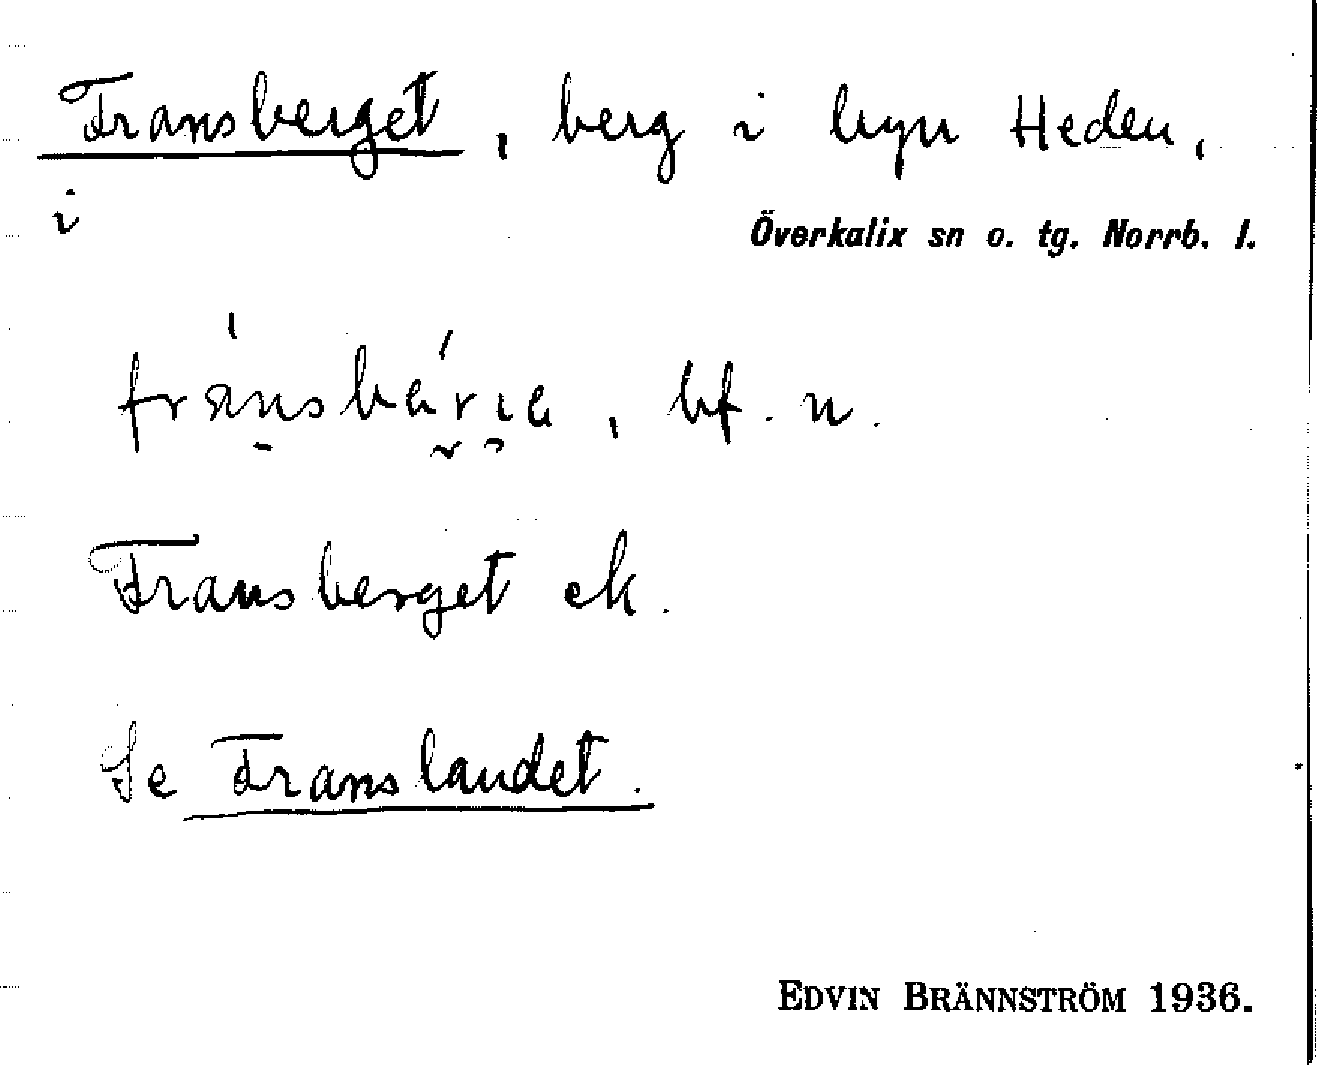 Transberget, berg i byn Heden,
i
Överkalix sn o. tg. Norrb. l.
bf. n.
Transberget ek.
Se Translandet.
EDVIN BRÄNNSTRÖM 1936.